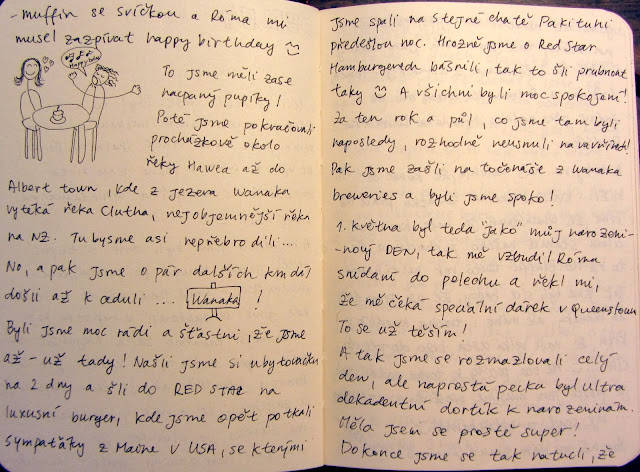 - muffin se svíčkou a Róma mi
musel zazpívat happy birthday
Happy bday
To jsme měli zase
nacpaný pupíky!
Poté jsme pokračovali
procházkově okolo
řeky Hawea až do
Albert town, kde z jezera Wanaka
vytéká řeka Clutha, nejobjemnější řeka
na NZ. Tu bysme asi nepřebrodili...
No, a pak jsme o pár dalších km dál
došli až k ceduli ... Wanaka !
Byli jsme moc rádi a šťastní, že jsme
až - už tady! Našli jsme si ubytování
na 2 dny a šli do RED STAR na
luxusní burger, kde jsme opět potkali
sympaťáky z Maine v USA, se kterými
jsme spali na stejné chatě Pakituhi
předešlou noc. Hrozně jsme o Red Star
Hamburgerech básnili, tak to šli prubnout
taky A všichni byli moc spokojení!
Za ten rok a půl, co jsme tam byli
naposledy, rozhodně neusnuli na vavřínech!
Pak jsme zašli na točeňáše z Wanaka
breweries a byli jsme spoko!
1. května byl teda "jako" můj narozeni-
-nový DEN, tak mě vzbudil Róma
snídaní do pelechu a řekl mi,
že mě čeká speciální dárek v Queenstownu
To se už těším!
A tak jsme se rozmazlovali celý
den, ale naprostá pecka byl ultra
dekadentní dortík k narozeninám.
Měla jsem se prostě super!
Dokonce jsme se tak natucli, že